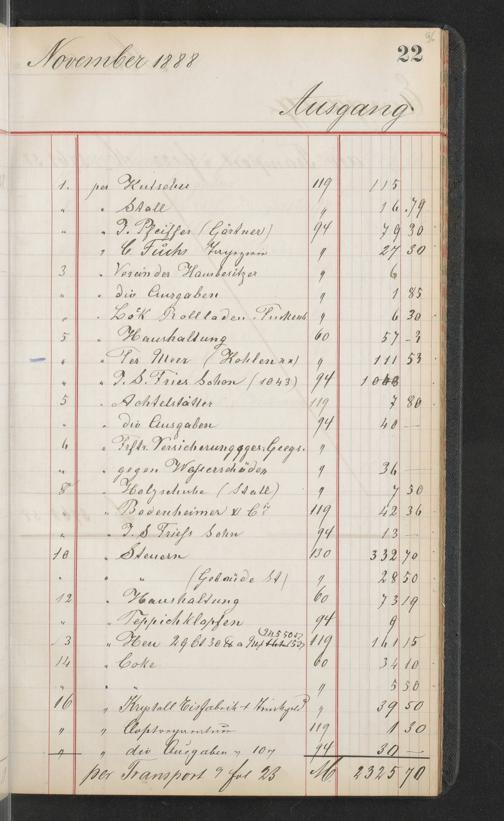 22
November 1888
Ausgang
1. per Kutscher 119 115
" " Stall " 16.79
" " J. Pfeiffer (Gärtner) 94 79 30
" C. Fuchs " 27 30
3 " Verein der Hausbesitzer " 6
" " div Ausgaben " 1 85
" " Rollladen " 6 30
5 " Haushaltung 60 57
" " Ter Meer (Kohlen) " 111 53
" " J. S. Fries Sohn (1043) 94
5 " Achtelstätter 119 7 80
" " div Ausgaben 94 40 —
6 " Versicherungsges. "
" " gegen Wasserschäden " 36
8 " Holzschuhe (Stall) " 7 30
" " Bodenheimer & Cie 119 42 36
" " J. S. Fries Sohn 94 13 —
10 " Steuern 130 332 70
" " " (Gebäude St) " 28 50
12 " Haushaltung 60 73 19
" " Teppichklopfen 94 9
13 " Heu 119 161 15
14 " Coke 60 34 10
" " " " 5 50
16 " Krystall Eisfabrik " 39 50
" " 119 1 30
" " div Ausgaben 94 30 —
per Transport fol 23 M 2325 70